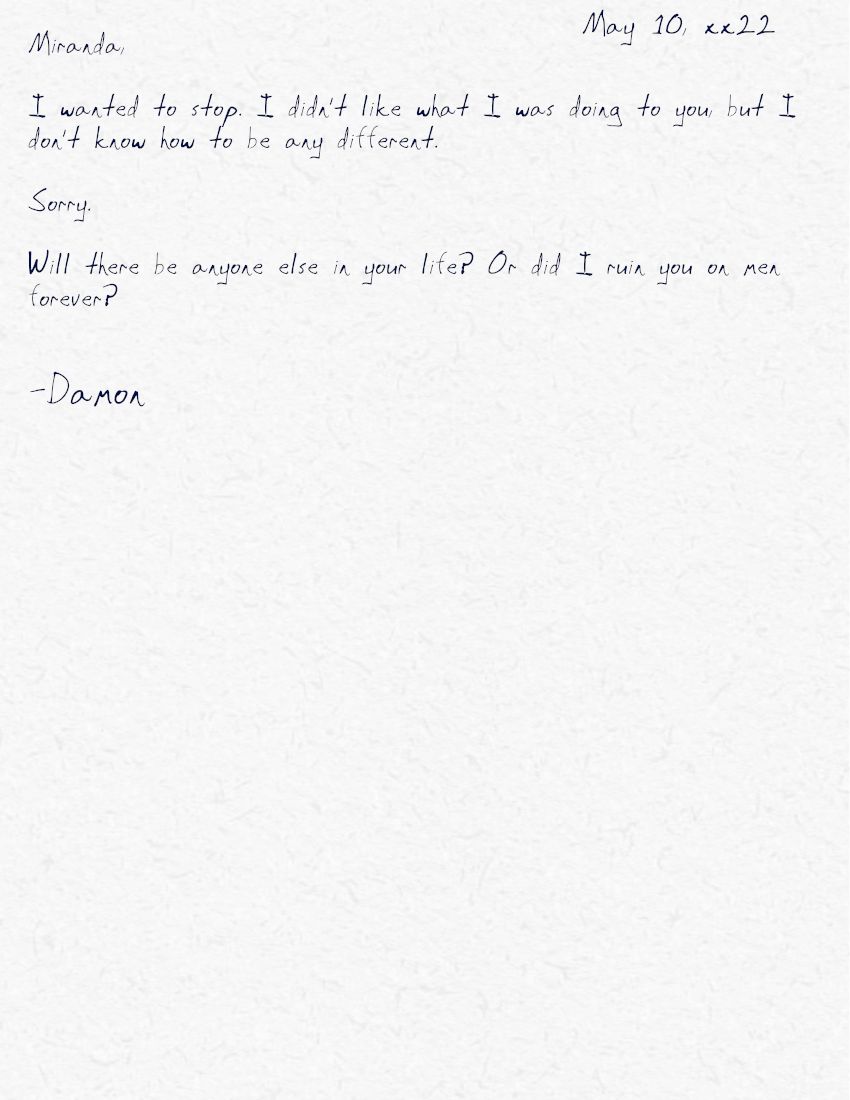 May 10, xx22
Miranda,
I wanted to stop. I didn't like what I was doing to you, but I
don't know how to be any different.
Sorry.
Will there be anyone else in your life? Or did I ruin you on men
forever?
-Damon